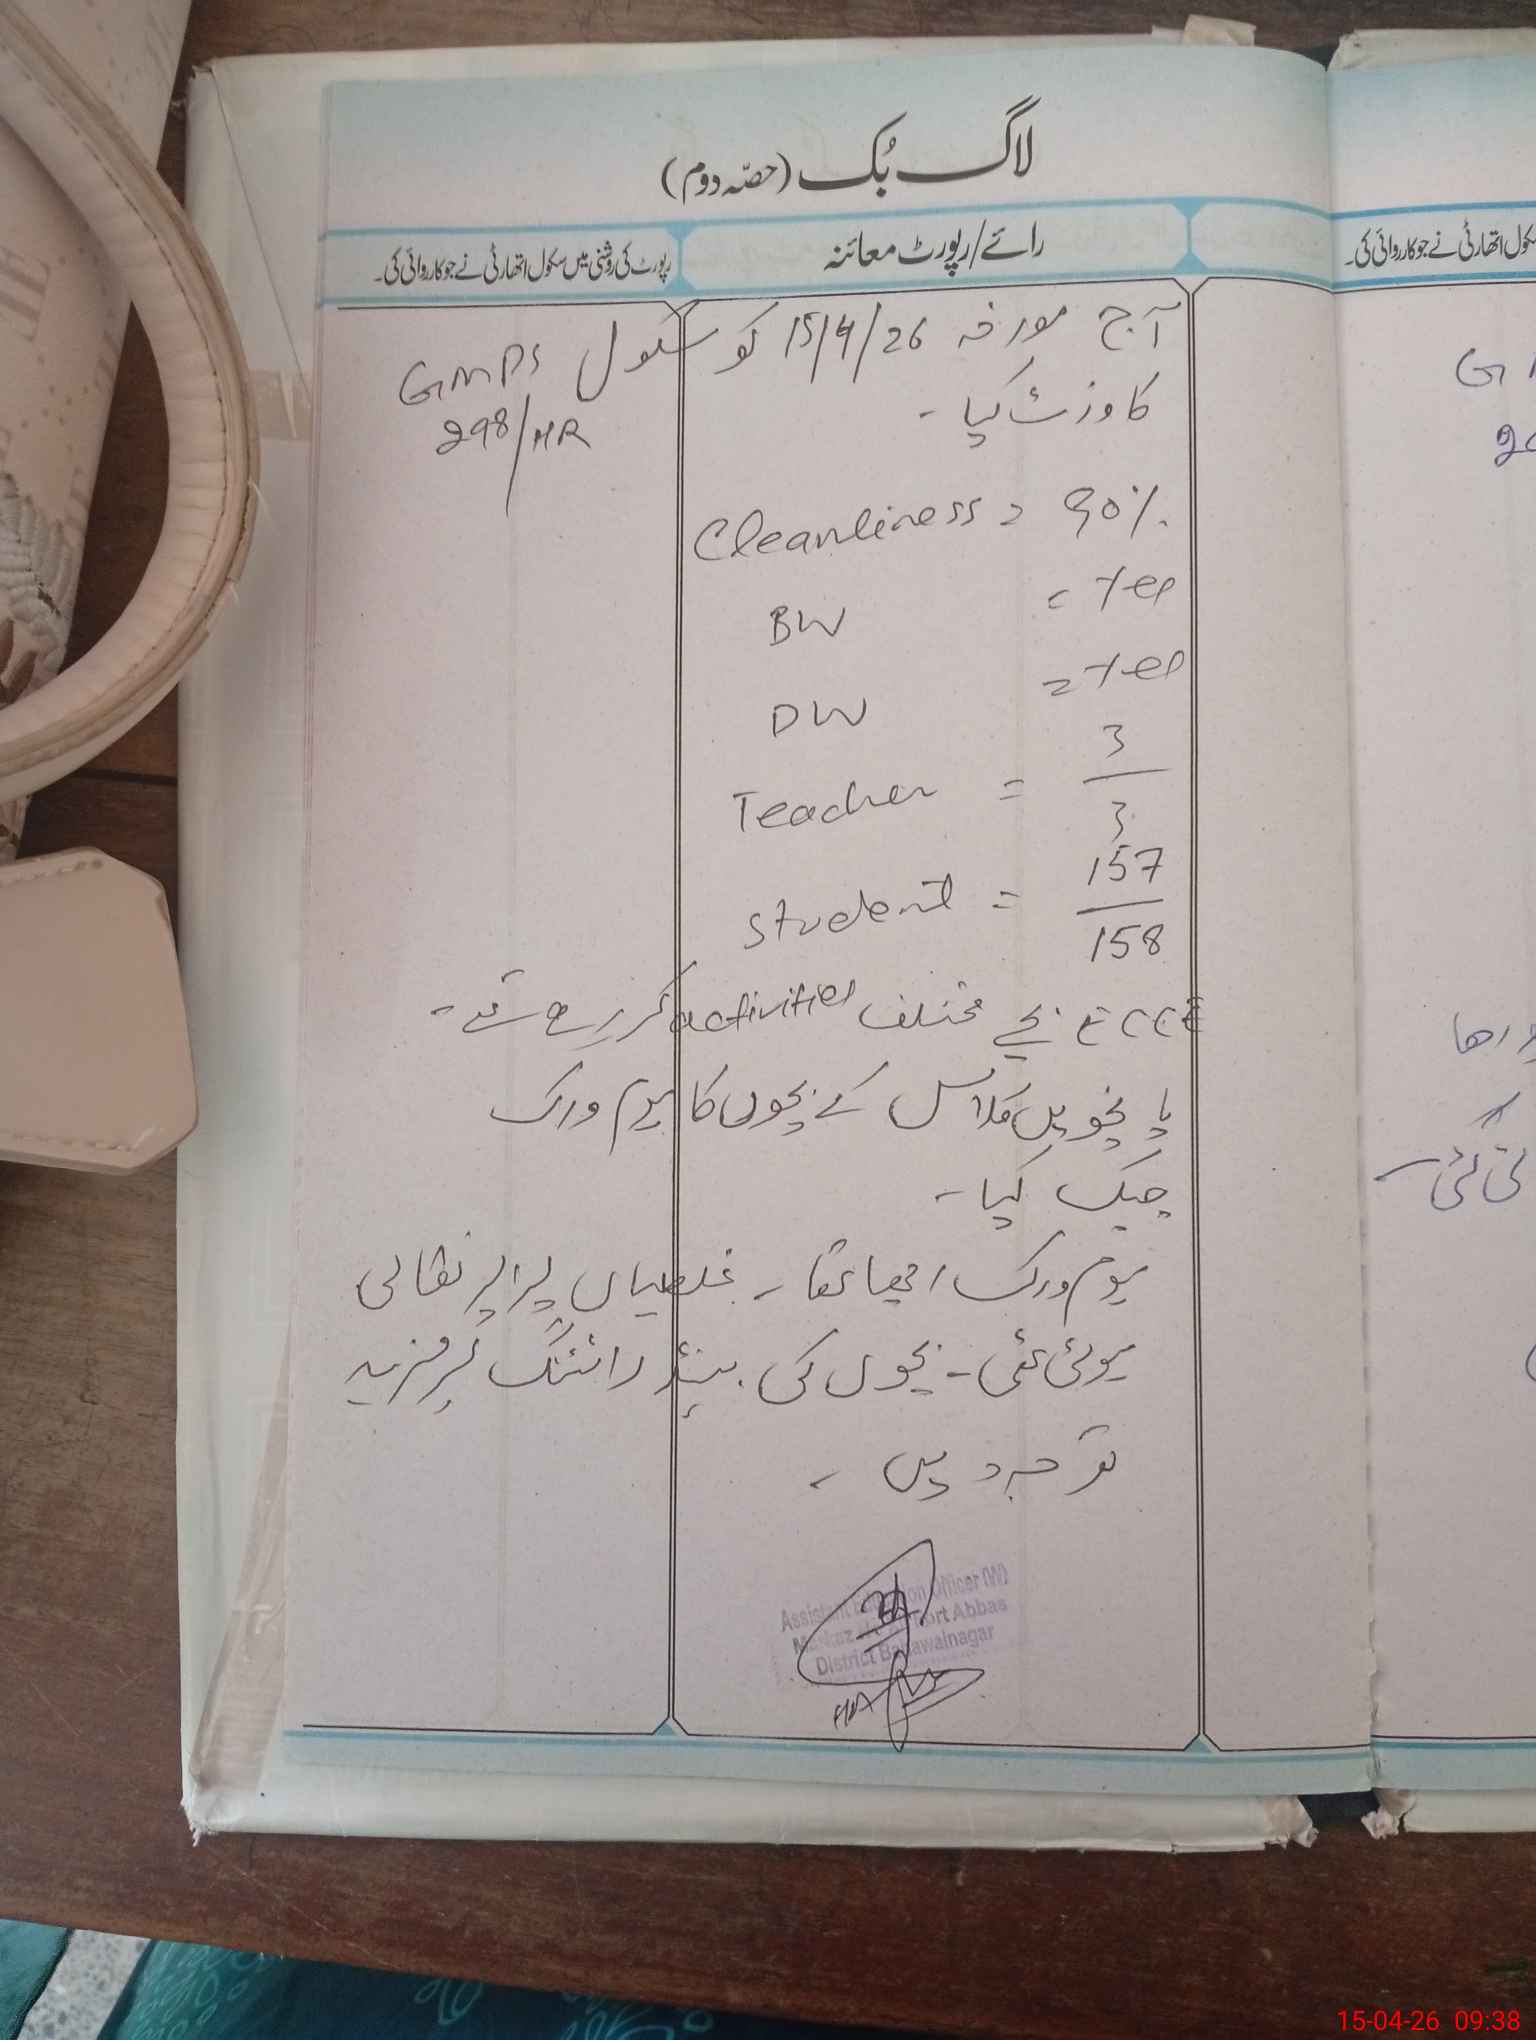 لاگ بُک (حصّہ دوم)
رائے/رپورٹ معائنہ
رپورٹ کی روشنی میں سکول اتھارٹی نے جو کارروائی کی۔
آج مورخہ 15/4/26 کو سکول GMPS
298/HR
کا وزٹ کیا -
Cleanliness = 90%
BW = Yes
DW = Yes
Teacher = 3/3
Student = 157/158
ECCE بچے مختلف activities کر رہے تھے -
پانچویں کلاس کے بچوں کا ہوم ورک
چیک کیا -
ہوم ورک اچھا تھا - غلطیاں پراپر نکالی
ہوئی تھی - بچوں کی ہینڈ رائٹنگ پر مزید
توجہ دیں -
Assistant Education Officer (W)
Markaz Fort Abbas
District Bahawalnagar
سکول اتھارٹی نے جو کارروائی کی۔
15-04-26 09:38